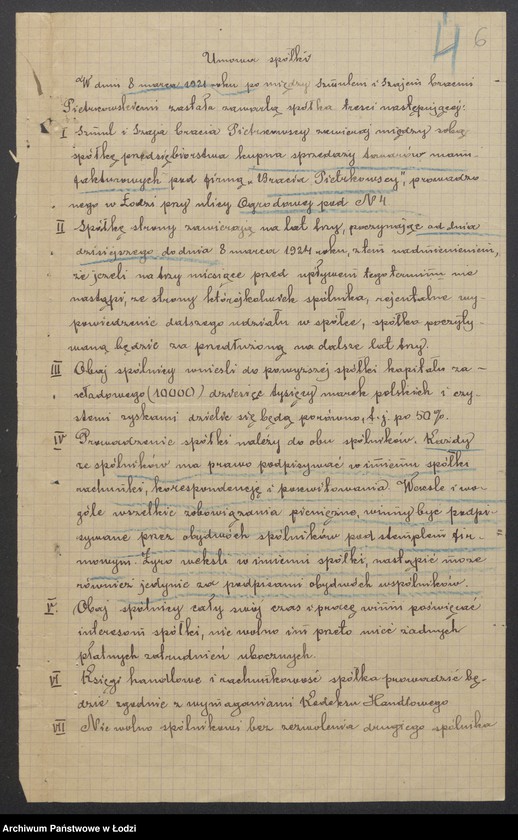 4 6
Umowa spółki
W dniu 8 marca 1921 roku po między Szmulem i Szają braćmi
Pietrkowskiemi została zawartą spółka treści następującej:
I Szmul i Szaja bracia Pietrkowscy zawierają między sobą
spółkę przedsiębiorstwa kupna sprzedaży towarów manu-
fakturowych pod firmą „Bracia Pietrkowscy", prowadzo
nego w Łodzi przy ulicy Ogrodowej pod № 4
II Spółkę strony zawierają na lat trzy, poczynając od dnia
dzisiejszego do dnia 8 marca 1924 roku, z tem nadmienieniem,
że jeżeli na trzy miesiące przed upływem tego terminu nie
nastąpi, ze strony którejkolwiek spólnika, rejentalne wy-
powiedzenie dalszego udziału w spółce, spółka poczyty-
waną będzie za przedłużoną na dalsze lat trzy.
III Obaj spólnicy wnieśli do powyższej spółki kapitału za-
kładowego (10000) dziesięć tysięcy marek polskich i czy-
stemi zyskami dzielić się będą porówno, t.j. po 50%.
IV Prowadzenie spółki należy do obu spólników. Każdy
ze spólników ma prawo podpisywać w imieniu spółki
rachunki, korespondencję i pokwitowania. Weksle i wo-
góle wszelkie zobowiązania pieniężne, winny być podpi-
sywane przez obydwuch spólników pod stemplem fir-
mowym. Żyro weksli w imieniu spółki, nastąpić może
również jedynie za podpisami obydwuch wspólników.
V Obaj spólnicy cały swój czas i pracę winni poświęcać
interesom spółki, nie wolno im przeto mieć żadnych
płatnych zatrudnień ubocznych.
VI Księgi handlowe i rachunkowość spółka prowadzić bę-
dzie zgodnie z wymaganiami Kodeksu Handlowego
VII Nie wolno spólnikowi bez zezwolenia drugiego spólnika
Archiwum Państwowe w Łodzi